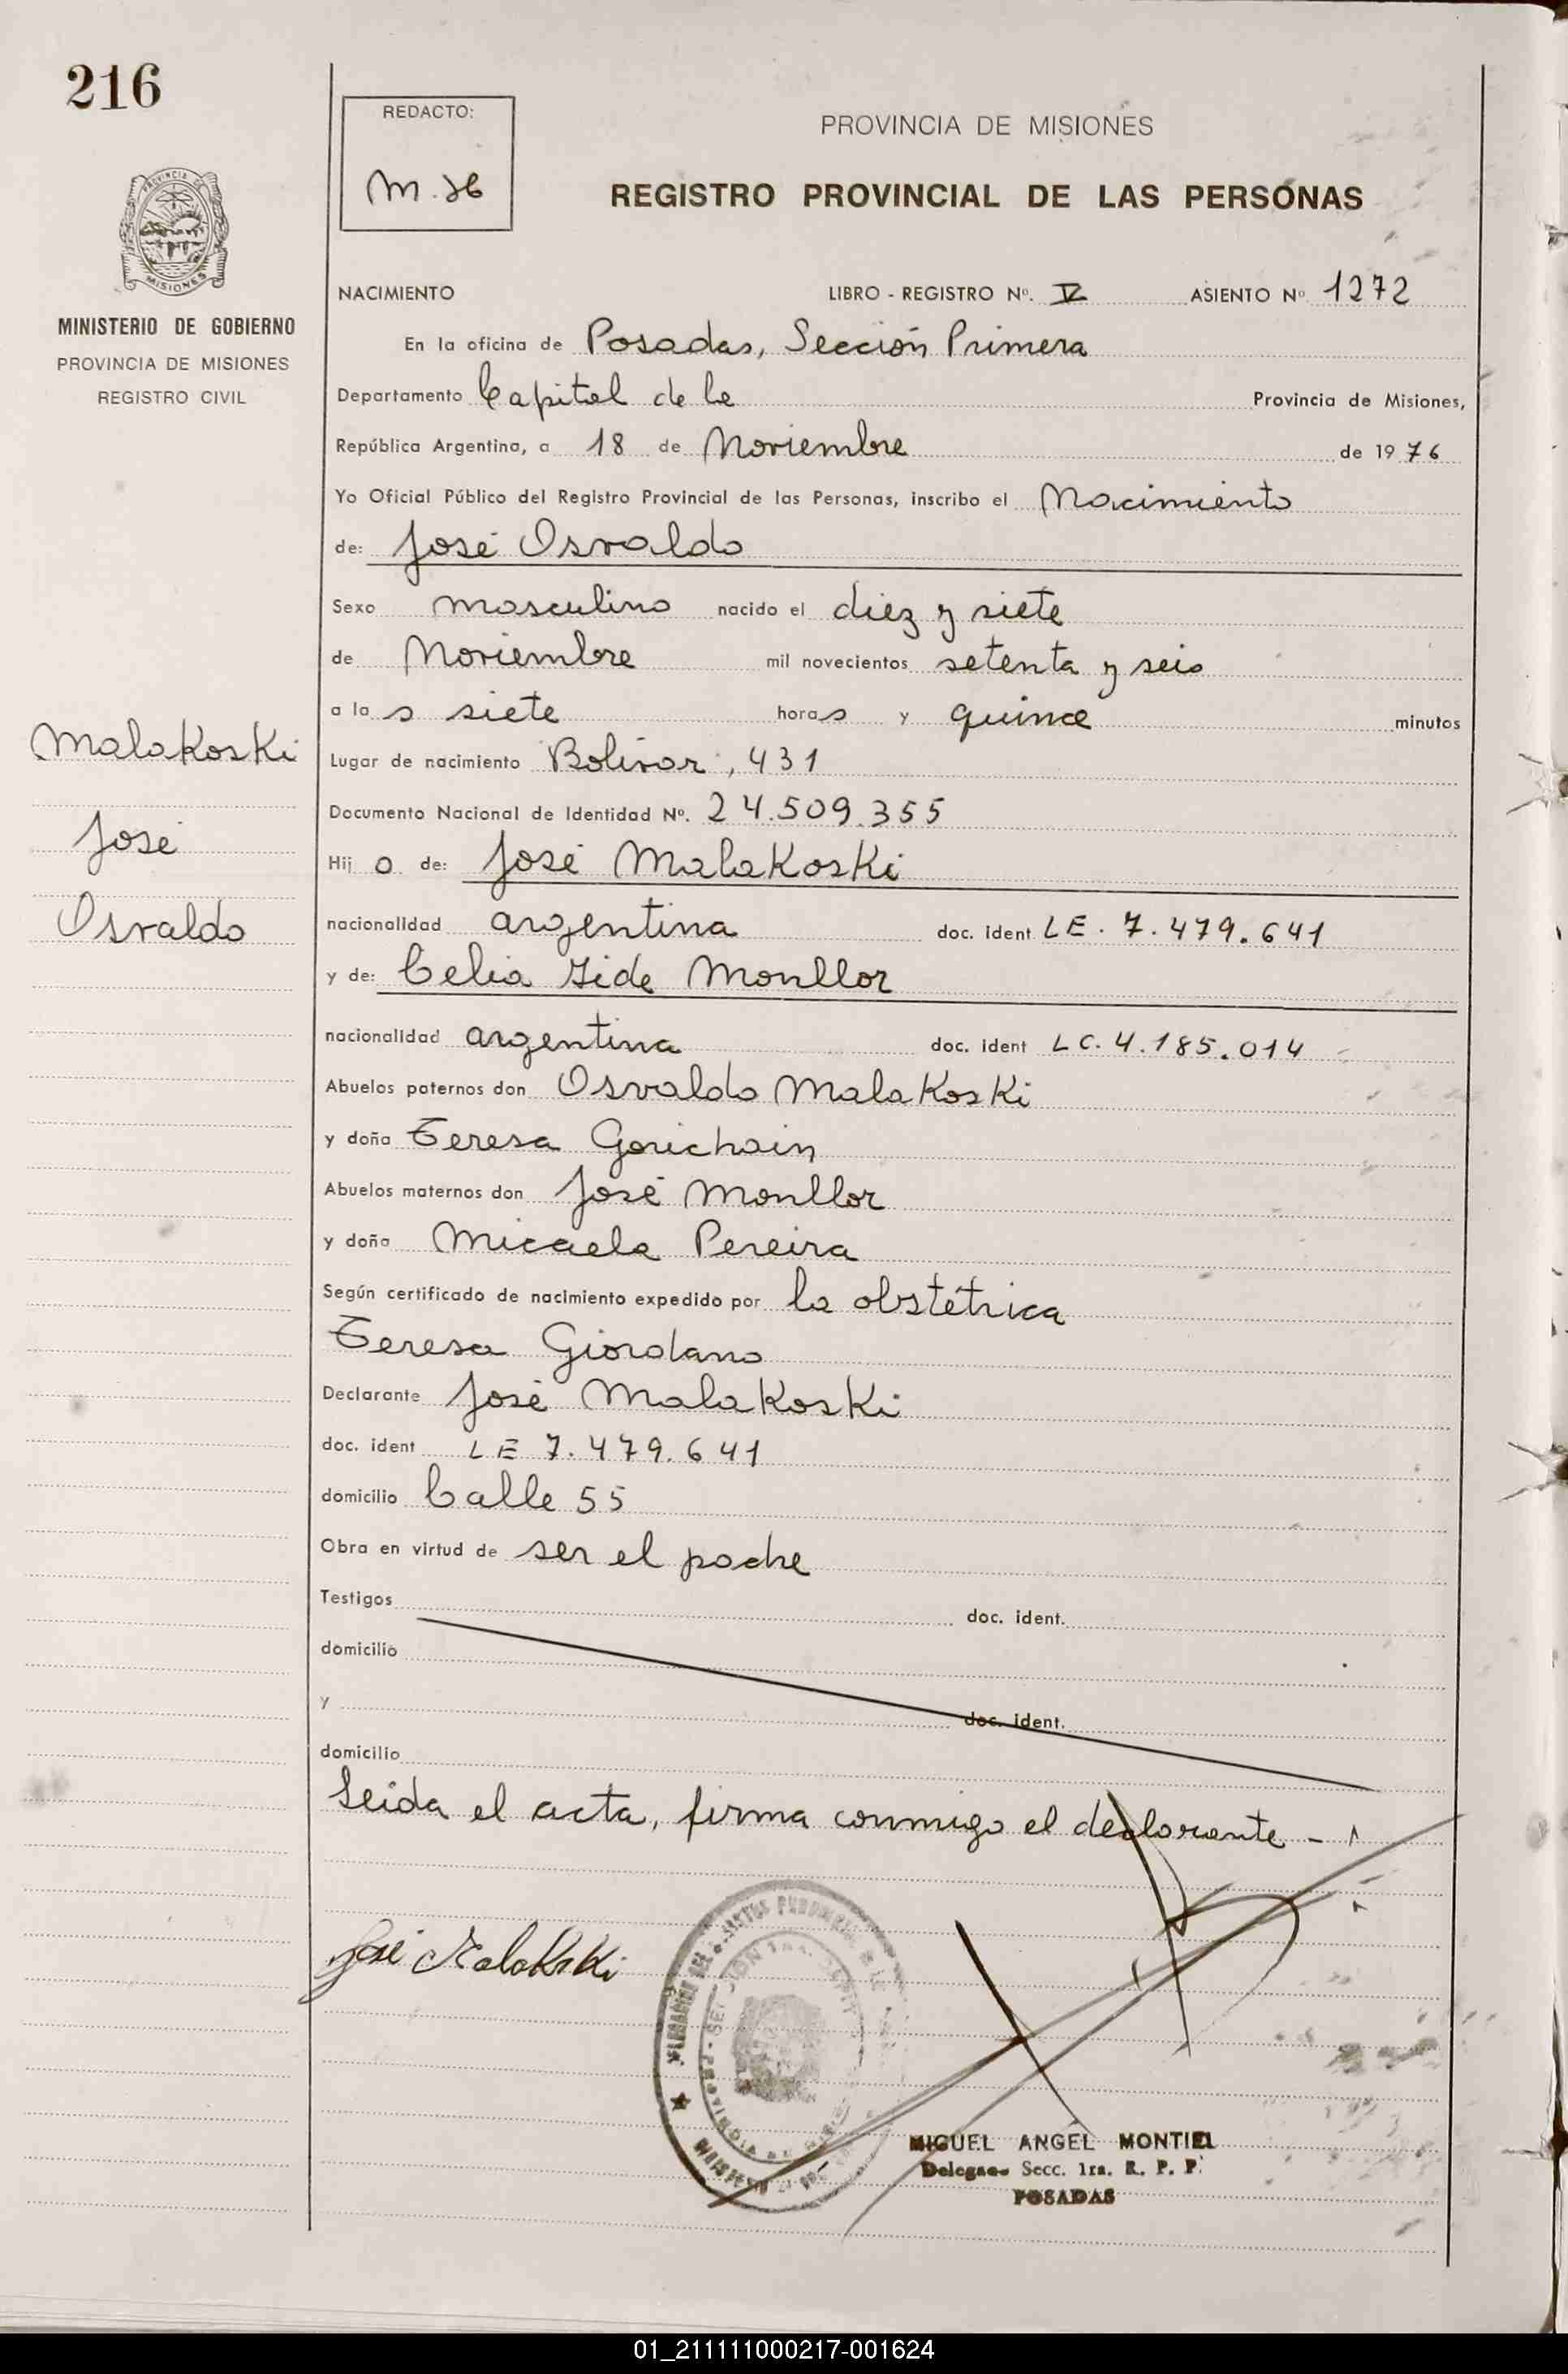 216
REDACTO:
M.H
PROVINCIA DE MISIONES
REGISTRO PROVINCIAL DE LAS PERSONAS
PROVINCIA DE
MISIONES
MINISTERIO DE GOBIERNO
PROVINCIA DE MISIONES
REGISTRO CIVIL
NACIMIENTO LIBRO - REGISTRO Nº. V ASIENTO Nº 1272
En la oficina de Posadas, Sección Primera
Departamento Capital de la Provincia de Misiones,
República Argentina, a 18 de Noviembre de 1976
Yo Oficial Público del Registro Provincial de las Personas, inscribo el Nacimiento
de: José Osvaldo
Sexo masculino nacido el diez y siete
de Noviembre mil novecientos setenta y seis
a las siete horas y quince minutos
Malakoski
José
Osvaldo
Lugar de nacimiento Bolívar, 431
Documento Nacional de Identidad Nº. 24.509.355
Hijo de: José Malakoski
nacionalidad argentina doc. ident LE. 7.479.641
y de: Celia Monllor
nacionalidad argentina doc. ident LC. 4.185.014
Abuelos paternos don Osvaldo Malakoski
y doña Teresa
Abuelos maternos don José Monllor
y doña Micaela Pereira
Según certificado de nacimiento expedido por la obstétrica
Teresa Giordano
Declarante José Malakoski
doc. ident LE 7.479.641
domicilio Calle 55
Obra en virtud de ser el padre
Testigos doc. ident.
domicilio
y doc. ident.
domicilio
Leída el acta, firma conmigo el declarante -
José Malakoski
MIGUEL ANGEL MONTIEL
Secc. 1ra. R. P. P.
POSADAS
01_211111000217-001624